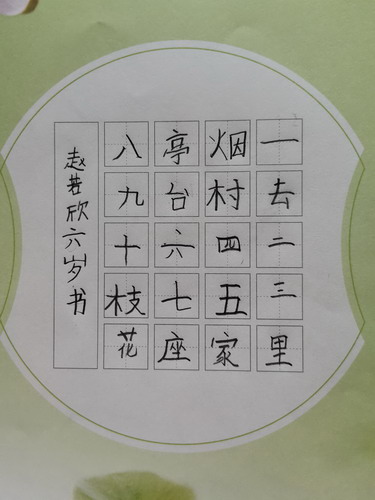 一去二三里
烟村四五家
亭台六七座
八九十枝花
赵若欣六岁书